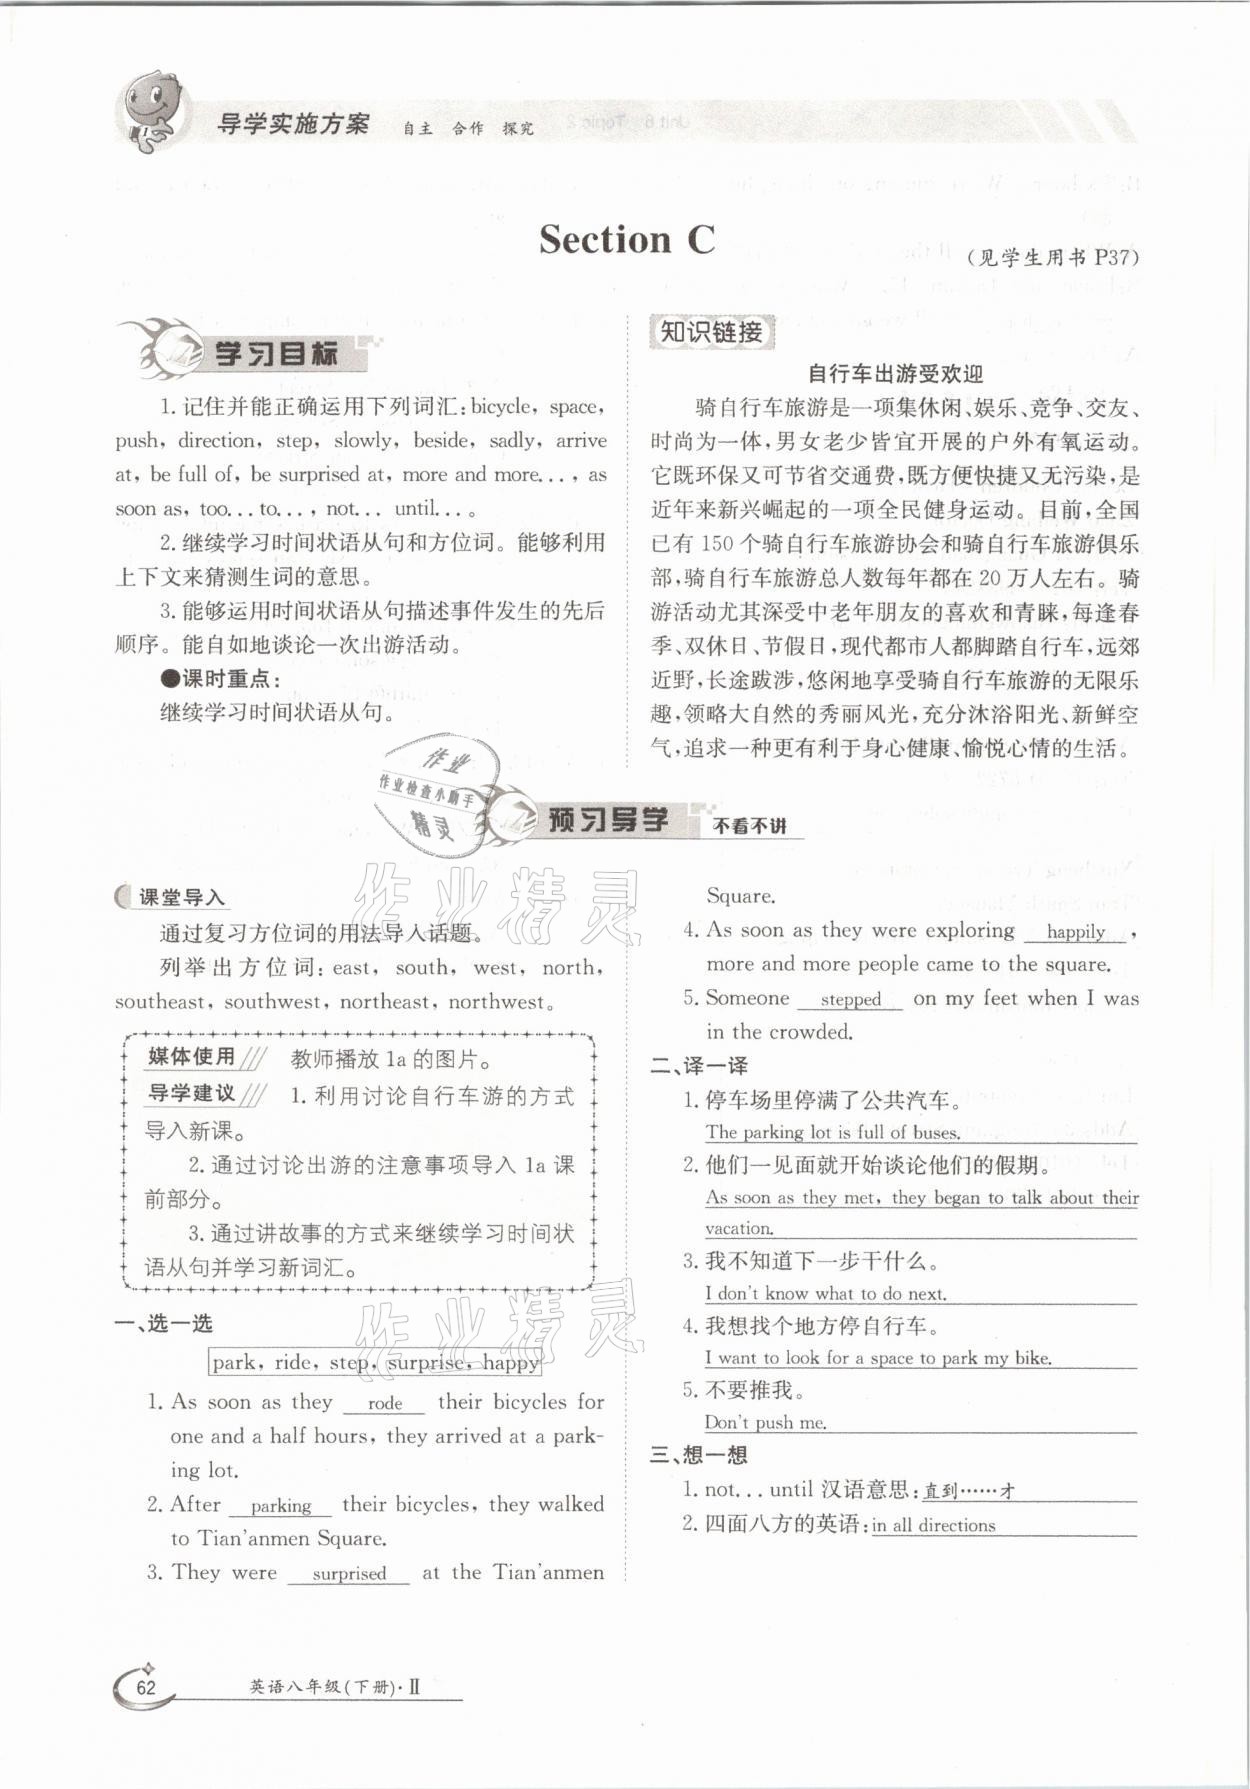 导学实施方案 自主 合作 探究
Section C
(见学生用书 P37)
学习目标
1. 记住并能正确运用下列词汇: bicycle, space,
push, direction, step, slowly, beside, sadly, arrive
at, be full of, be surprised at, more and more..., as
soon as, too... to..., not... until...。
2. 继续学习时间状语从句和方位词。能够利用
上下文来猜测生词的意思。
3. 能够运用时间状语从句描述事件发生的先后
顺序。能自如地谈论一次出游活动。
●课时重点:
继续学习时间状语从句。
知识链接
自行车出游受欢迎
骑自行车旅游是一项集休闲、娱乐、竞争、交友、
时尚为一体,男女老少皆宜开展的户外有氧运动。
它既环保又可节省交通费,既方便快捷又无污染,是
近年来新兴崛起的一项全民健身运动。目前,全国
已有 150 个骑自行车旅游协会和骑自行车旅游俱乐
部,骑自行车旅游总人数每年都在 20 万人左右。骑
游活动尤其深受中老年朋友的喜欢和青睐,每逢春
季、双休日、节假日,现代都市人都脚踏自行车,远郊
近野,长途跋涉,悠闲地享受骑自行车旅游的无限乐
趣,领略大自然的秀丽风光,充分沐浴阳光、新鲜空
气,追求一种更有利于身心健康、愉悦心情的生活。
作业
作业检查小助手
精灵
预习导学 不看不讲
作业精灵
课堂导入
通过复习方位词的用法导入话题。
列举出方位词: east, south, west, north,
southeast, southwest, northeast, northwest。
媒体使用 教师播放 1a 的图片。
导学建议 1. 利用讨论自行车游的方式
导入新课。
2. 通过讨论出游的注意事项导入 1a 课
前部分。
3. 通过讲故事的方式来继续学习时间状
语从句并学习新词汇。
作业精灵
一、选一选
park, ride, step, surprise, happy
1. As soon as they rode their bicycles for
one and a half hours, they arrived at a park-
ing lot.
2. After parking their bicycles, they walked
to Tian'anmen Square.
3. They were surprised at the Tian'anmen
Square.
4. As soon as they were exploring happily,
more and more people came to the square.
5. Someone stepped on my feet when I was
in the crowded.
二、译一译
1. 停车场里停满了公共汽车。
The parking lot is full of buses.
2. 他们一见面就开始谈论他们的假期。
As soon as they met, they began to talk about their
vacation.
3. 我不知道下一步干什么。
I don't know what to do next.
4. 我想找个地方停自行车。
I want to look for a space to park my bike.
5. 不要推我。
Don't push me.
三、想一想
1. not... until 汉语意思: 直到……才
2. 四面八方的英语: in all directions
62 英语八年级(下册)·Ⅱ